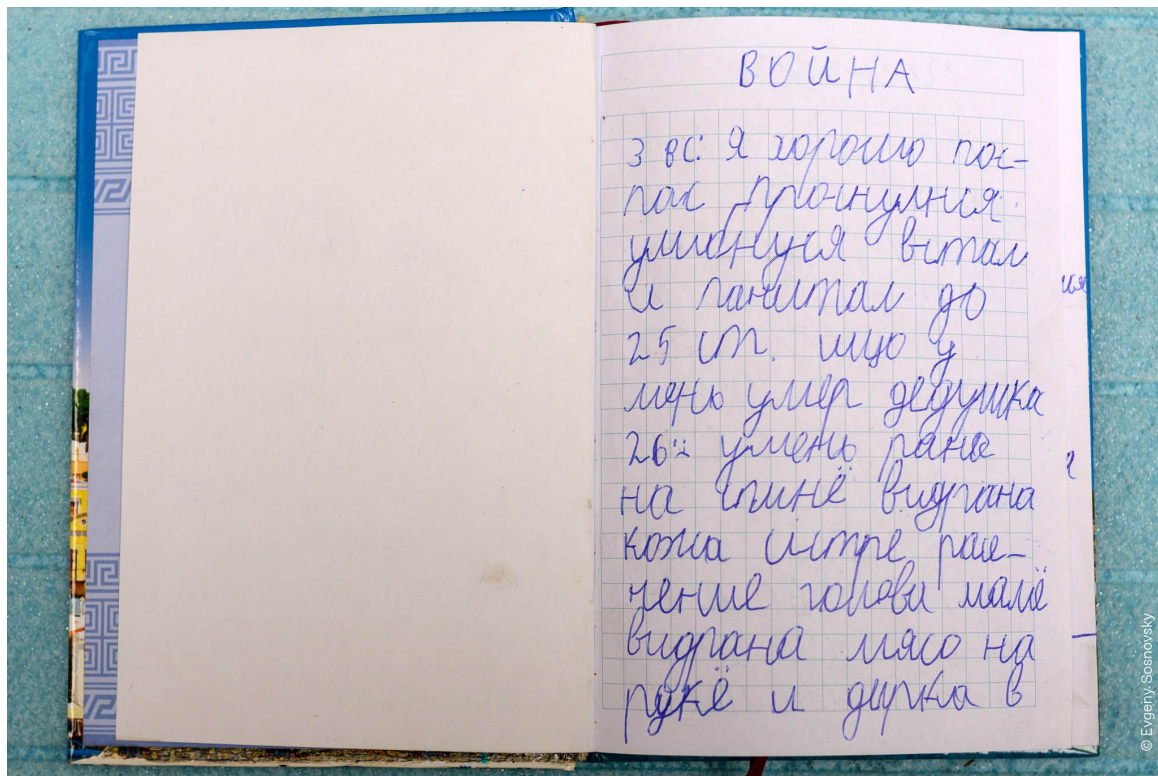 ВОЙНА
3 вс. Я хорошо пос-
пал Проснулнся
умионуся встал
и почитал до
25 ст. ищо у
мень умер дедушка
26ч умень рана
на спинё видрана
кожа систре рая-
нение голови мамё
видрана мясо на
рукё и дирка в
ия
© Evgeny Sosnovsky